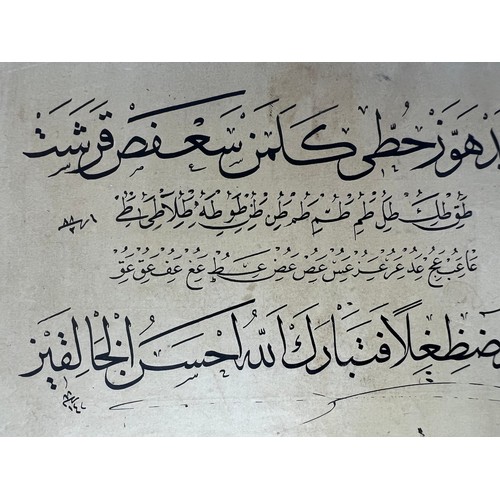 هَوَّزْ حُطِّي كَلَمَنْ سَعْفَصْ قَرَشَتْ
طق طك طل طم طم طم طن طن طو طه طلا طى طے
عا عب عج عد عر عز عس عص عض عط عع عف عق عق
ضظغلا فَتَبَارَكَ اللهُ اَحْسَنُ الْخَالِقِينَ